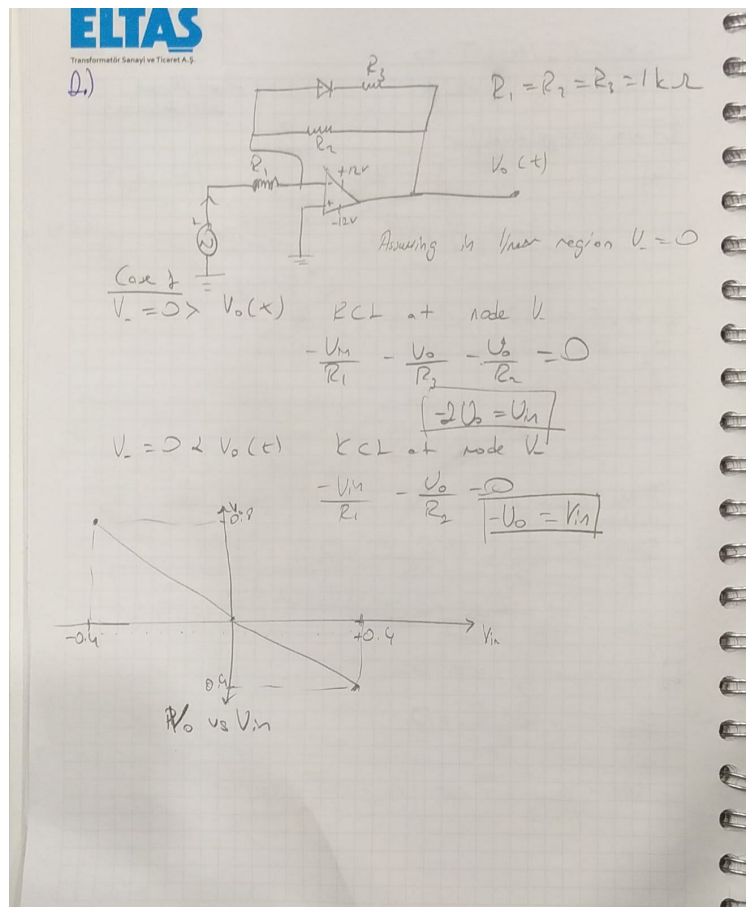 ELTAŞ
Transformatör Sanayi ve Ticaret A.Ş.
2.)
R₃
R₁ = R₂ = R₃ = 1 kΩ
R₂
R₁
+12V
-
+
-12V
V₀(t)
Assuming in linear region V₋ = 0
Case 1
V₋ = 0 > V₀(t) KCL at node V₋
-Vin/R₁ - V₀/R₃ - V₀/R₂ = 0
-2V₀ = Vin
V₋ = 0 < V₀(t) KCL at node V₋
-Vin/R₁ - V₀/R₂ = 0
-V₀ = Vin
V₀
0.8
-0.4
+0.4
Vin
0.4
V₀ vs Vin